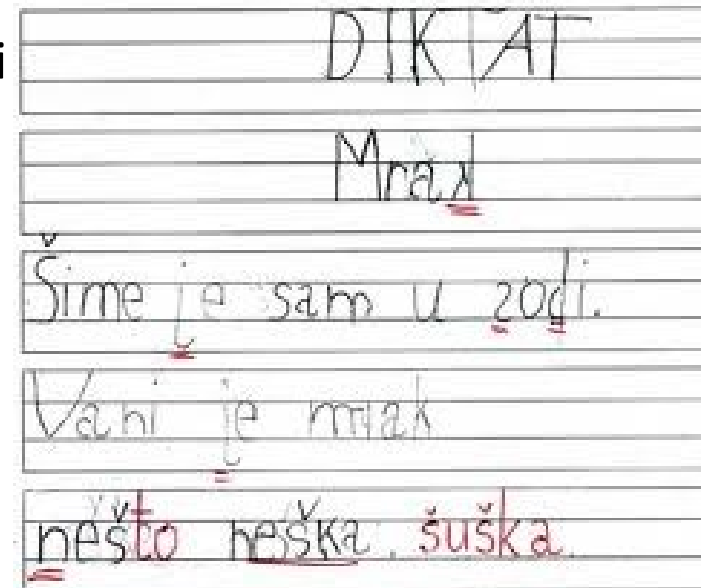 i
DIKTAT
Mrak
Šime je sam u zodi.
Vani je mrak
nešto neška. šuška.